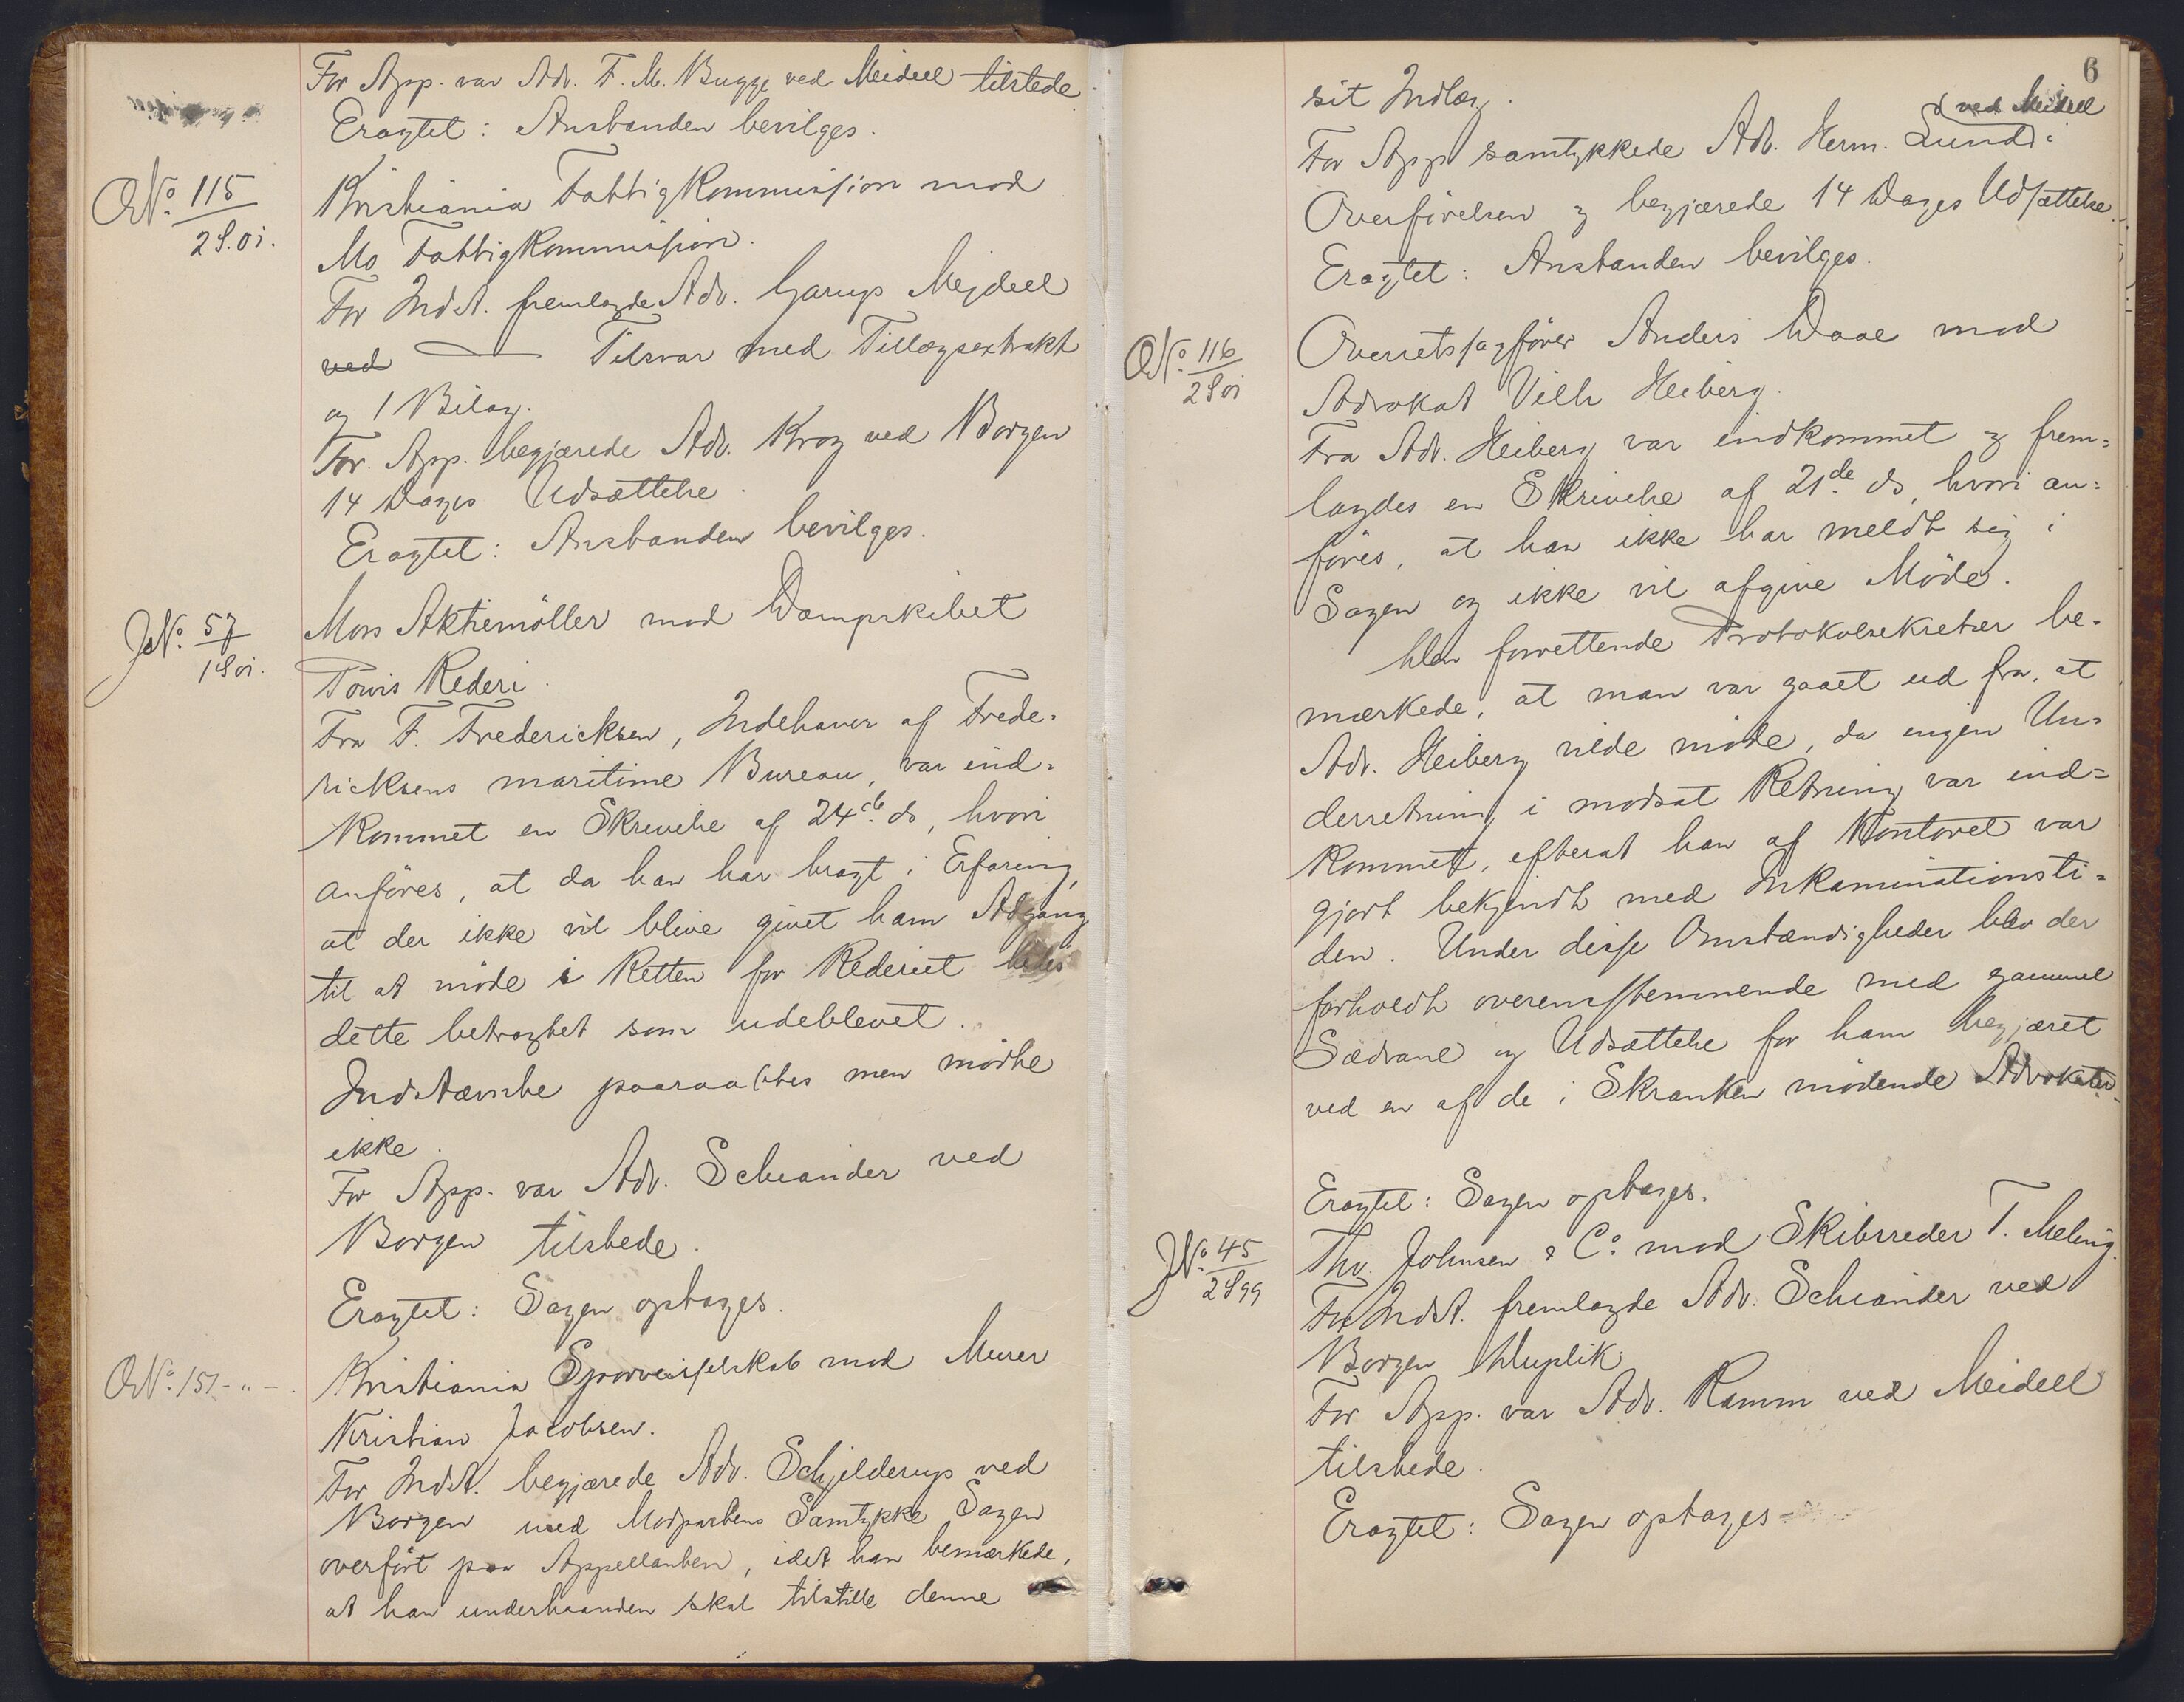 For App. var Adv. F. M. Bugge ved Meidell tilstede.
Eragtet: Anstanden bevilges.
ON⁰. 115
2 S. 01.
Kristiania Fattigkommission mod
Mo Fattigkommission.
For Indst. fremlagde Adv. Garup Mejdell
ved Tilsvar med Tillægsextrakt
og 1 Bilag.
For App. begjærede Adv. Krog ved Borgen
14 Dages Udsættelse.
Eragtet: Anstanden bevilges.
JN⁰. 57
1 S 01.
Moss Aktiemöller mod Dampskibet
Powis Rederi.
Fra F. Fredericksen, Indehaver af Frede-
ricksens maritime Bureau, var ind-
kommet en Skrivelse af 24de ds, hvori
anföres, at da han har bragt i Erfaring,
at der ikke vil blive givet ham Adgang
til at möde i Retten for Rederiet bedes
dette betragtet som udeblevet.
Indstævnte paaraabtes men mödte
ikke.
For App. var Adv. Scheander ved
Borgen tilstede.
Eragtet: Sagen optages.
ON⁰. 151 - " -
Kristiania Sporveisselskab mod Murer
Kristian Jacobsen.
For Indst. begjærede Adv. Schjelderup ved
Borgen med Modpartens Samtykke Sagen
overfört paa Appellanten, idet han bemærkede,
at han underhaanden skal tilstille denne
6
sit Indlæg.
ved Meidell
For App samtykkede Adv. Herm. Lund i
Overförelsen og begjærede 14 Dages Udsættelse.
Eragtet: Anstanden bevilges.
ON⁰. 116
2 S 01
Overretssagförer Anders Daae mod
Advokat Vilh Heiberg.
Fra Adv. Heiberg var indkommet og frem-
lagdes en Skrivelse af 21de ds, hvori an-
föres, at han ikke har meldt sig i
Sagen og ikke vil afgive Möde.
Den forrettende Protokolsekretær be-
mærkede, at man var gaaet ud fra, at
Adv. Heiberg vilde möde, da ingen Un-
derretning i modsat Retning var ind-
kommet, efterat han af Kontoret var
gjort bekjendt med Inkaminationsti-
den. Under disse Omstændigheder blev der
forholdt overensstemmende med gammel
Sædvane og Udsættelse for ham begjæret
ved en af de i Skranken mödende Advokater.
Eragtet: Sagen optages.
JN⁰. 45
2 S 99
Thv. Johnsen & C⁰ mod Skibsreder T. Meling.
For Indst. fremlagde Adv. Scheander ved
Borgen Duplik
For App. var Adv. Ramm ved Meidell
tilstede.
Eragtet: Sagen optages -